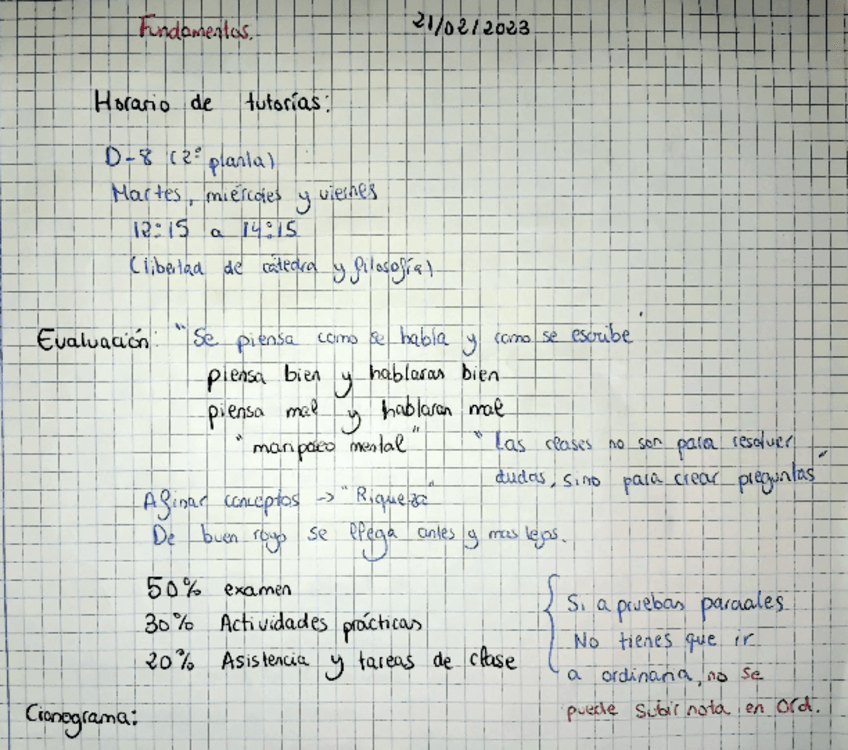 Fundamentos.
21/02/2023
Horario de tutorías:
D-8 (2º planta)
Martes, miércoles y viernes
12:15 a 14:15
(libertad de cátedra y filosofía)
Evaluación: "Se piensa como se habla y como se escribe"
piensa bien y hablaras bien
piensa mal y hablaran mal
"mental"
"las clases no son para resolver
dudas, sino para crear preguntas"
Afinar conceptos -> "Riqueza"
De buen royo se llega antes y mas lejos.
50% examen
30% Actividades prácticas
20% Asistencia y tareas de clase
Si apruebas parciales
No tienes que ir
a ordinaria, no se
puede subir nota en Ord.
Cronograma: